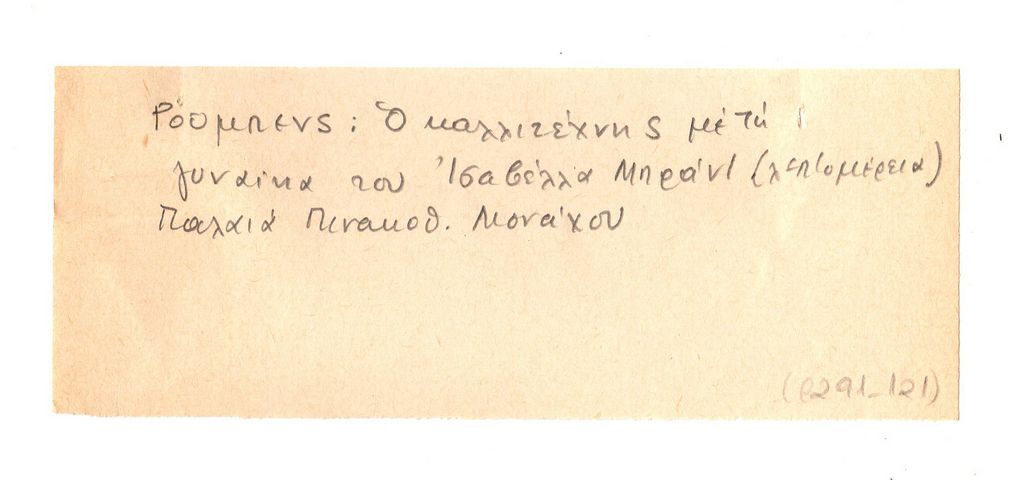 Ρούμπενς: Ὁ καλλιτέχνης μέ τή
γυναίκα του Ἰσαβέλλα Μπράντ (λεπτομέρεια)
Παλαιά Πινακοθ. Μονάχου
(ρ291-121)